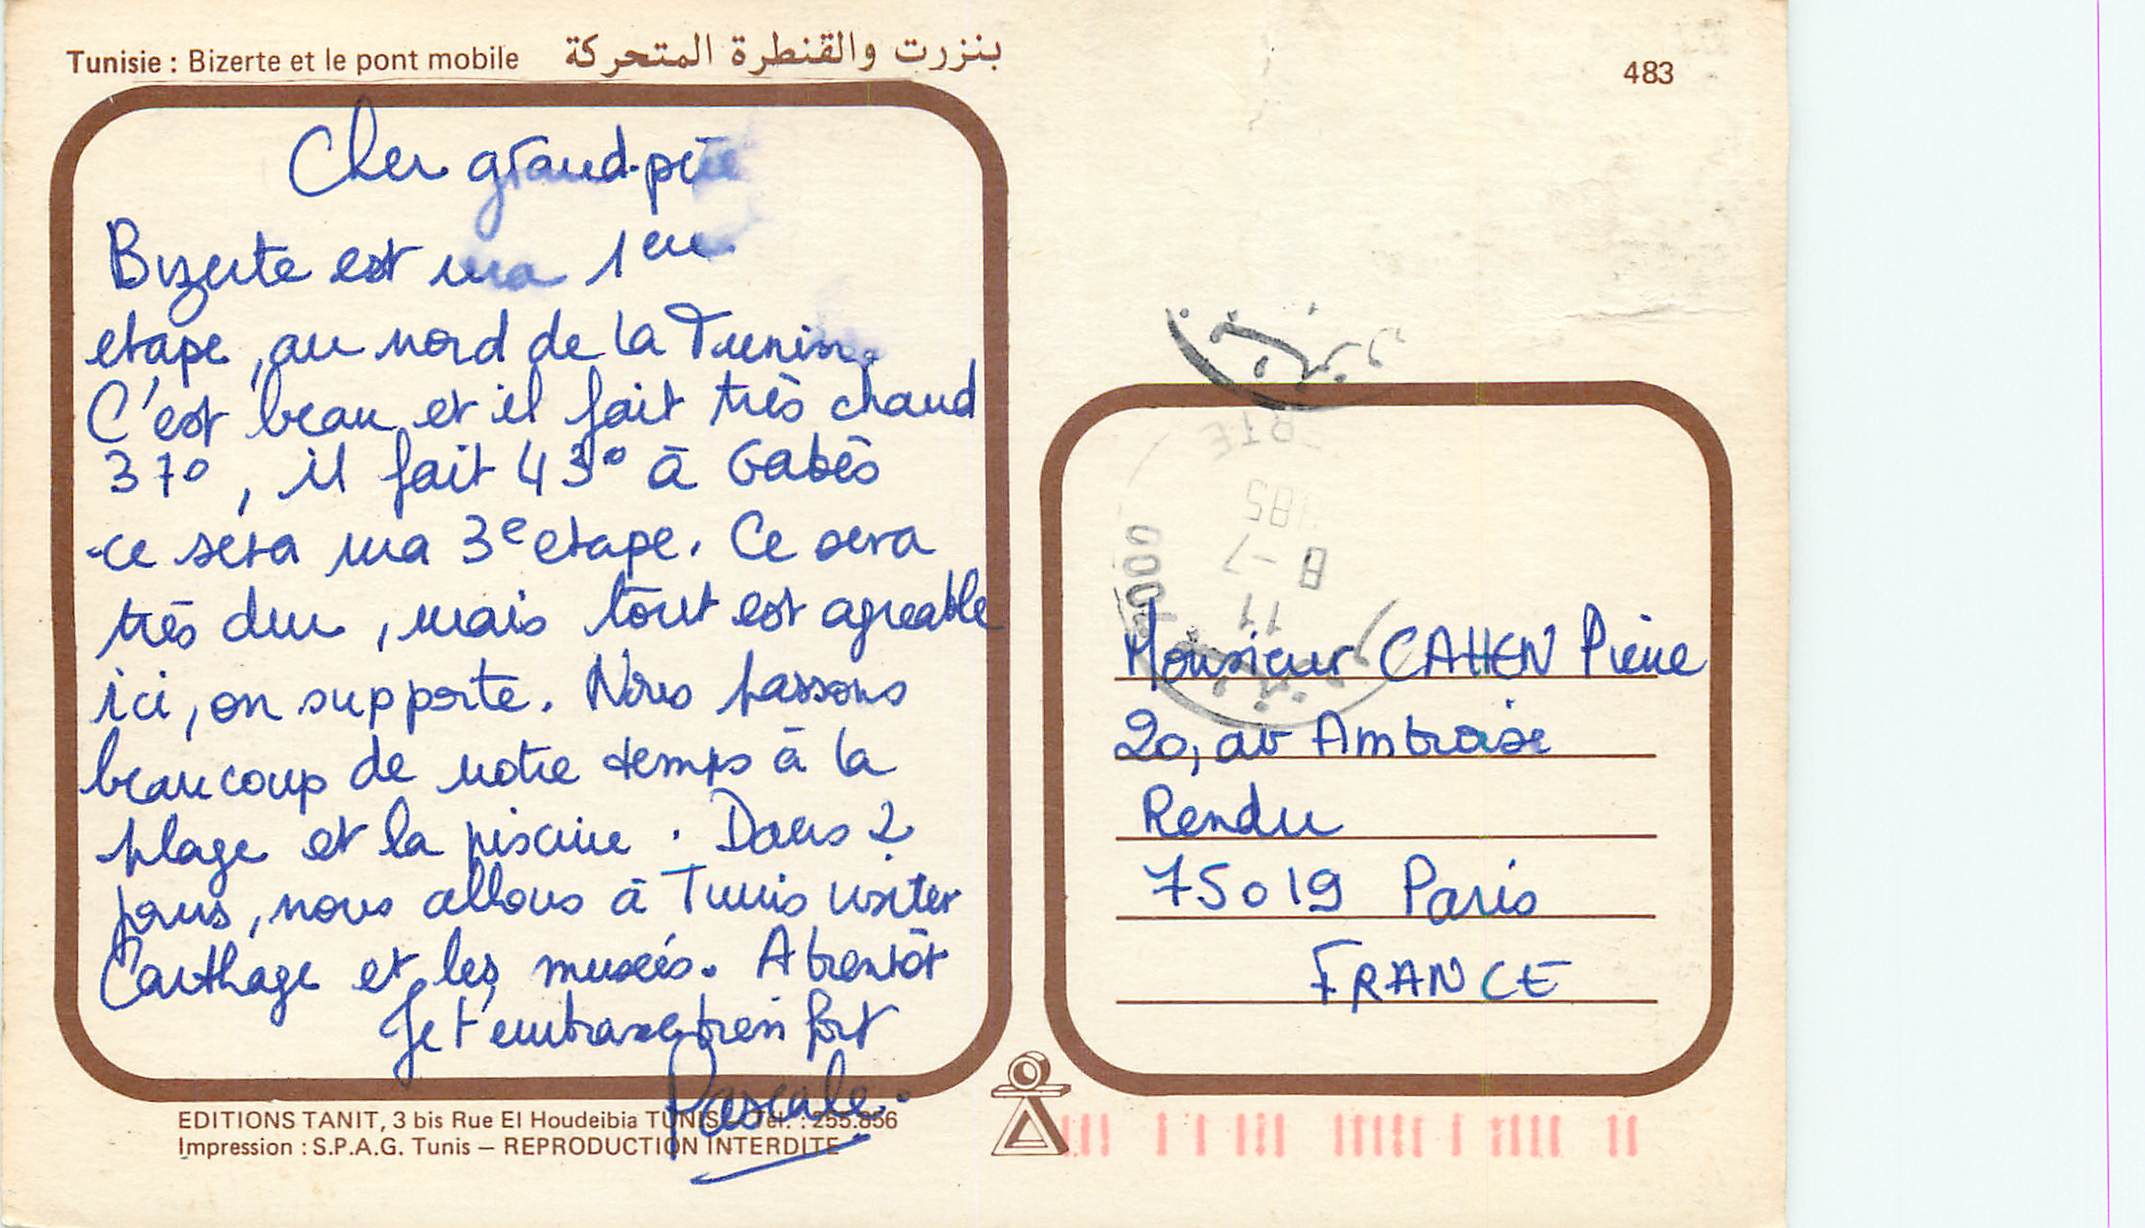 Tunisie : Bizerte et le pont mobile بنزرت والقنطرة المتحركة
483
Cher grand-père
Bizerte est ma 1ere
etape, au nord de la Tunisie.
C'est beau et il fait très chaud
37°, il fait 43° à Gabès
ce sera ma 3e etape. Ce sera
très dur, mais tout est agreable
ici, on supporte. Nous passons
beaucoup de notre temps à la
plage et la piscine. Dans 2
jours, nous allons à Tunis visiter
Carthage et les museés. A bientôt
Je t'embrasse bien fort
Pascale.
EDITIONS TANIT, 3 bis Rue El Houdeibia TUNIS – Tél. : 255.856
Impression : S.P.A.G. Tunis – REPRODUCTION INTERDITE
بنزرت
ERTE
185
8-7
11
7000
بنزرت
Monsieur CAHEN Pierre
20, av Ambroise
Rendu
75019 Paris
FRANCE